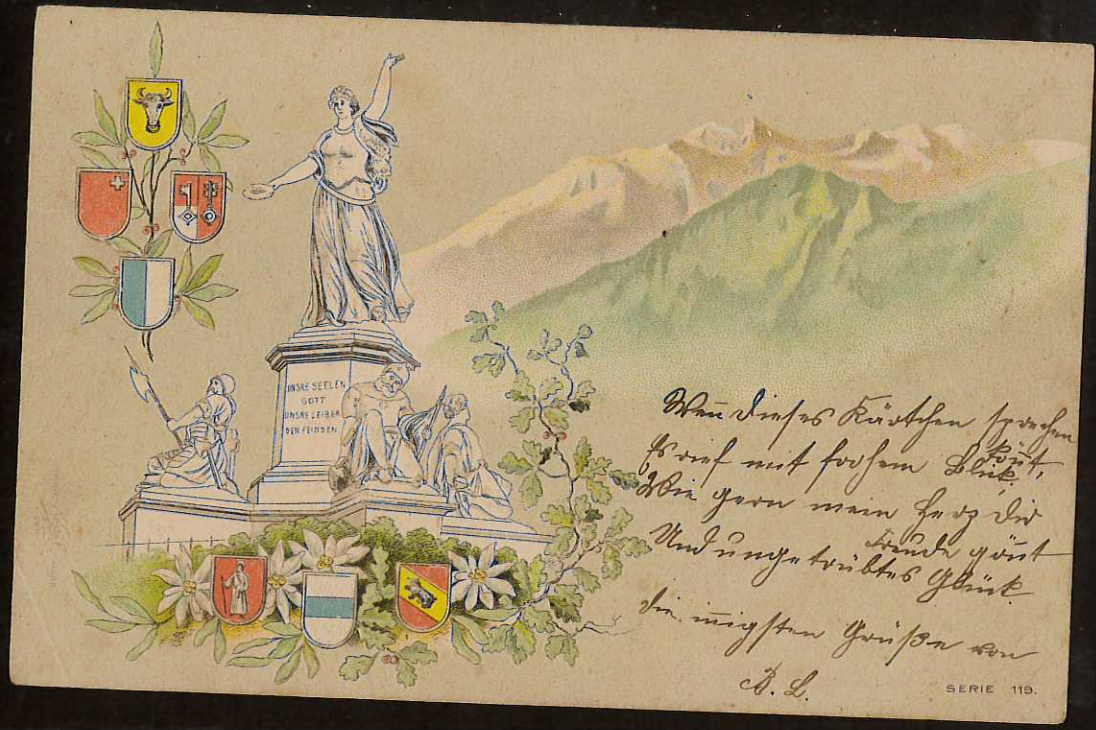 UNSRE SEELEN
GOTT
UNSRE LEIBER
DEN FEINDEN
Wen̄ dieses Kärtchen sprechen
kön̄t,
Es rief mit frohem Blick,
Wie gern mein Herz dir
Freude gön̄t
Und ungetrübtes Glück
die in̄igsten Grüße von
B. L.
SERIE 119.